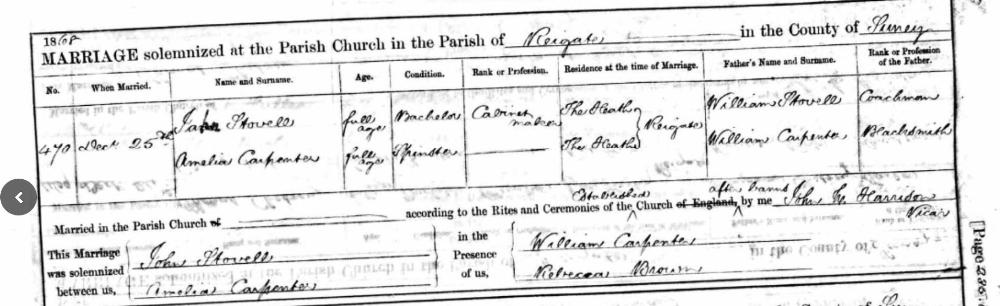 1868
MARRIAGE solemnized at the Parish Church in the Parish of Reigate in the County of Surrey
No. When Married. Name and Surname. Age. Condition. Rank or Profession. Residence at the time of Marriage. Father's Name and Surname. Rank or Profession of the Father.
470 Dect 25 John Stovell full age Bachelor Cabinet maker The Heath Reigate William Stovell Coachman
Amelia Carpenter full age Spinster The Heath William Carpenter Blacksmith
Married in the Parish Church of according to the Rites and Ceremonies of the Established Church of England, after banns by me John N. Harrison
Vicar
This Marriage was solemnized between us,
John Stovell
Amelia Carpenter
in the Presence of us,
William Carpenter
Rebecca Brown
[Page 236